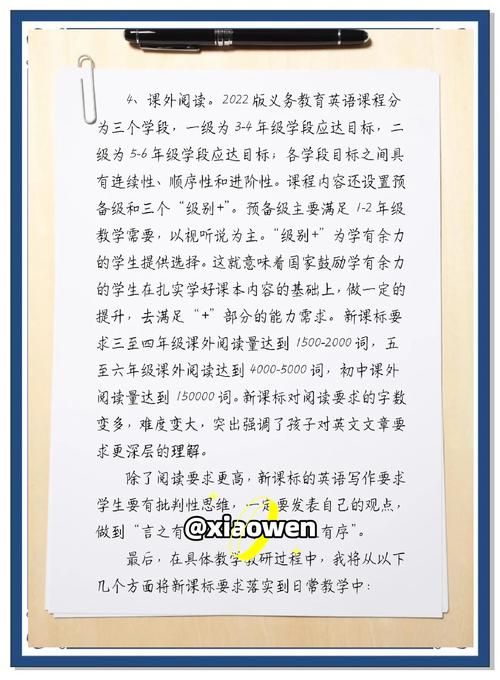 4、课外阅读。2022版义务教育英语课程分
为三个学段，一级为3-4年级学段应达目标，二
级为5-6年级学段应达目标；各学段目标之间具
有连续性、顺序性和进阶性。课程内容还设置预
备级和三个“级别+”。预备级主要满足1-2年级
教学需要，以视听说为主。“级别+”为学有余力
的学生提供选择。这就意味着国家鼓励学有余力
的学生在扎实学好课本内容的基础上，做一定的
提升，去满足“+”部分的能力需求。新课标要
求三至四年级课外阅读量达到1500-2000词，五
至六年级课外阅读达到4000-5000词，初中课外
阅读量达到150000词。新课标对阅读要求的字数
变多，难度变大，突出强调了孩子对英文文章要
求更深层的理解。
除了阅读要求更高，新课标的英语写作要求
学生要有批判性思维，一定要发表自己的观点，
做到“言之有 有序”。
@xiaowen
最后，在具体教学教研过程中，我将从以下
几个方面将新课标要求落实到日常教学中：